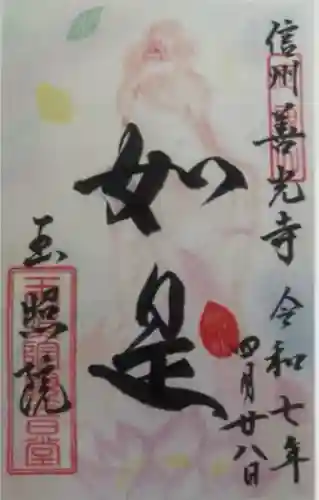 信州善光寺
令和七年
四月廿八日
如是
玉照院